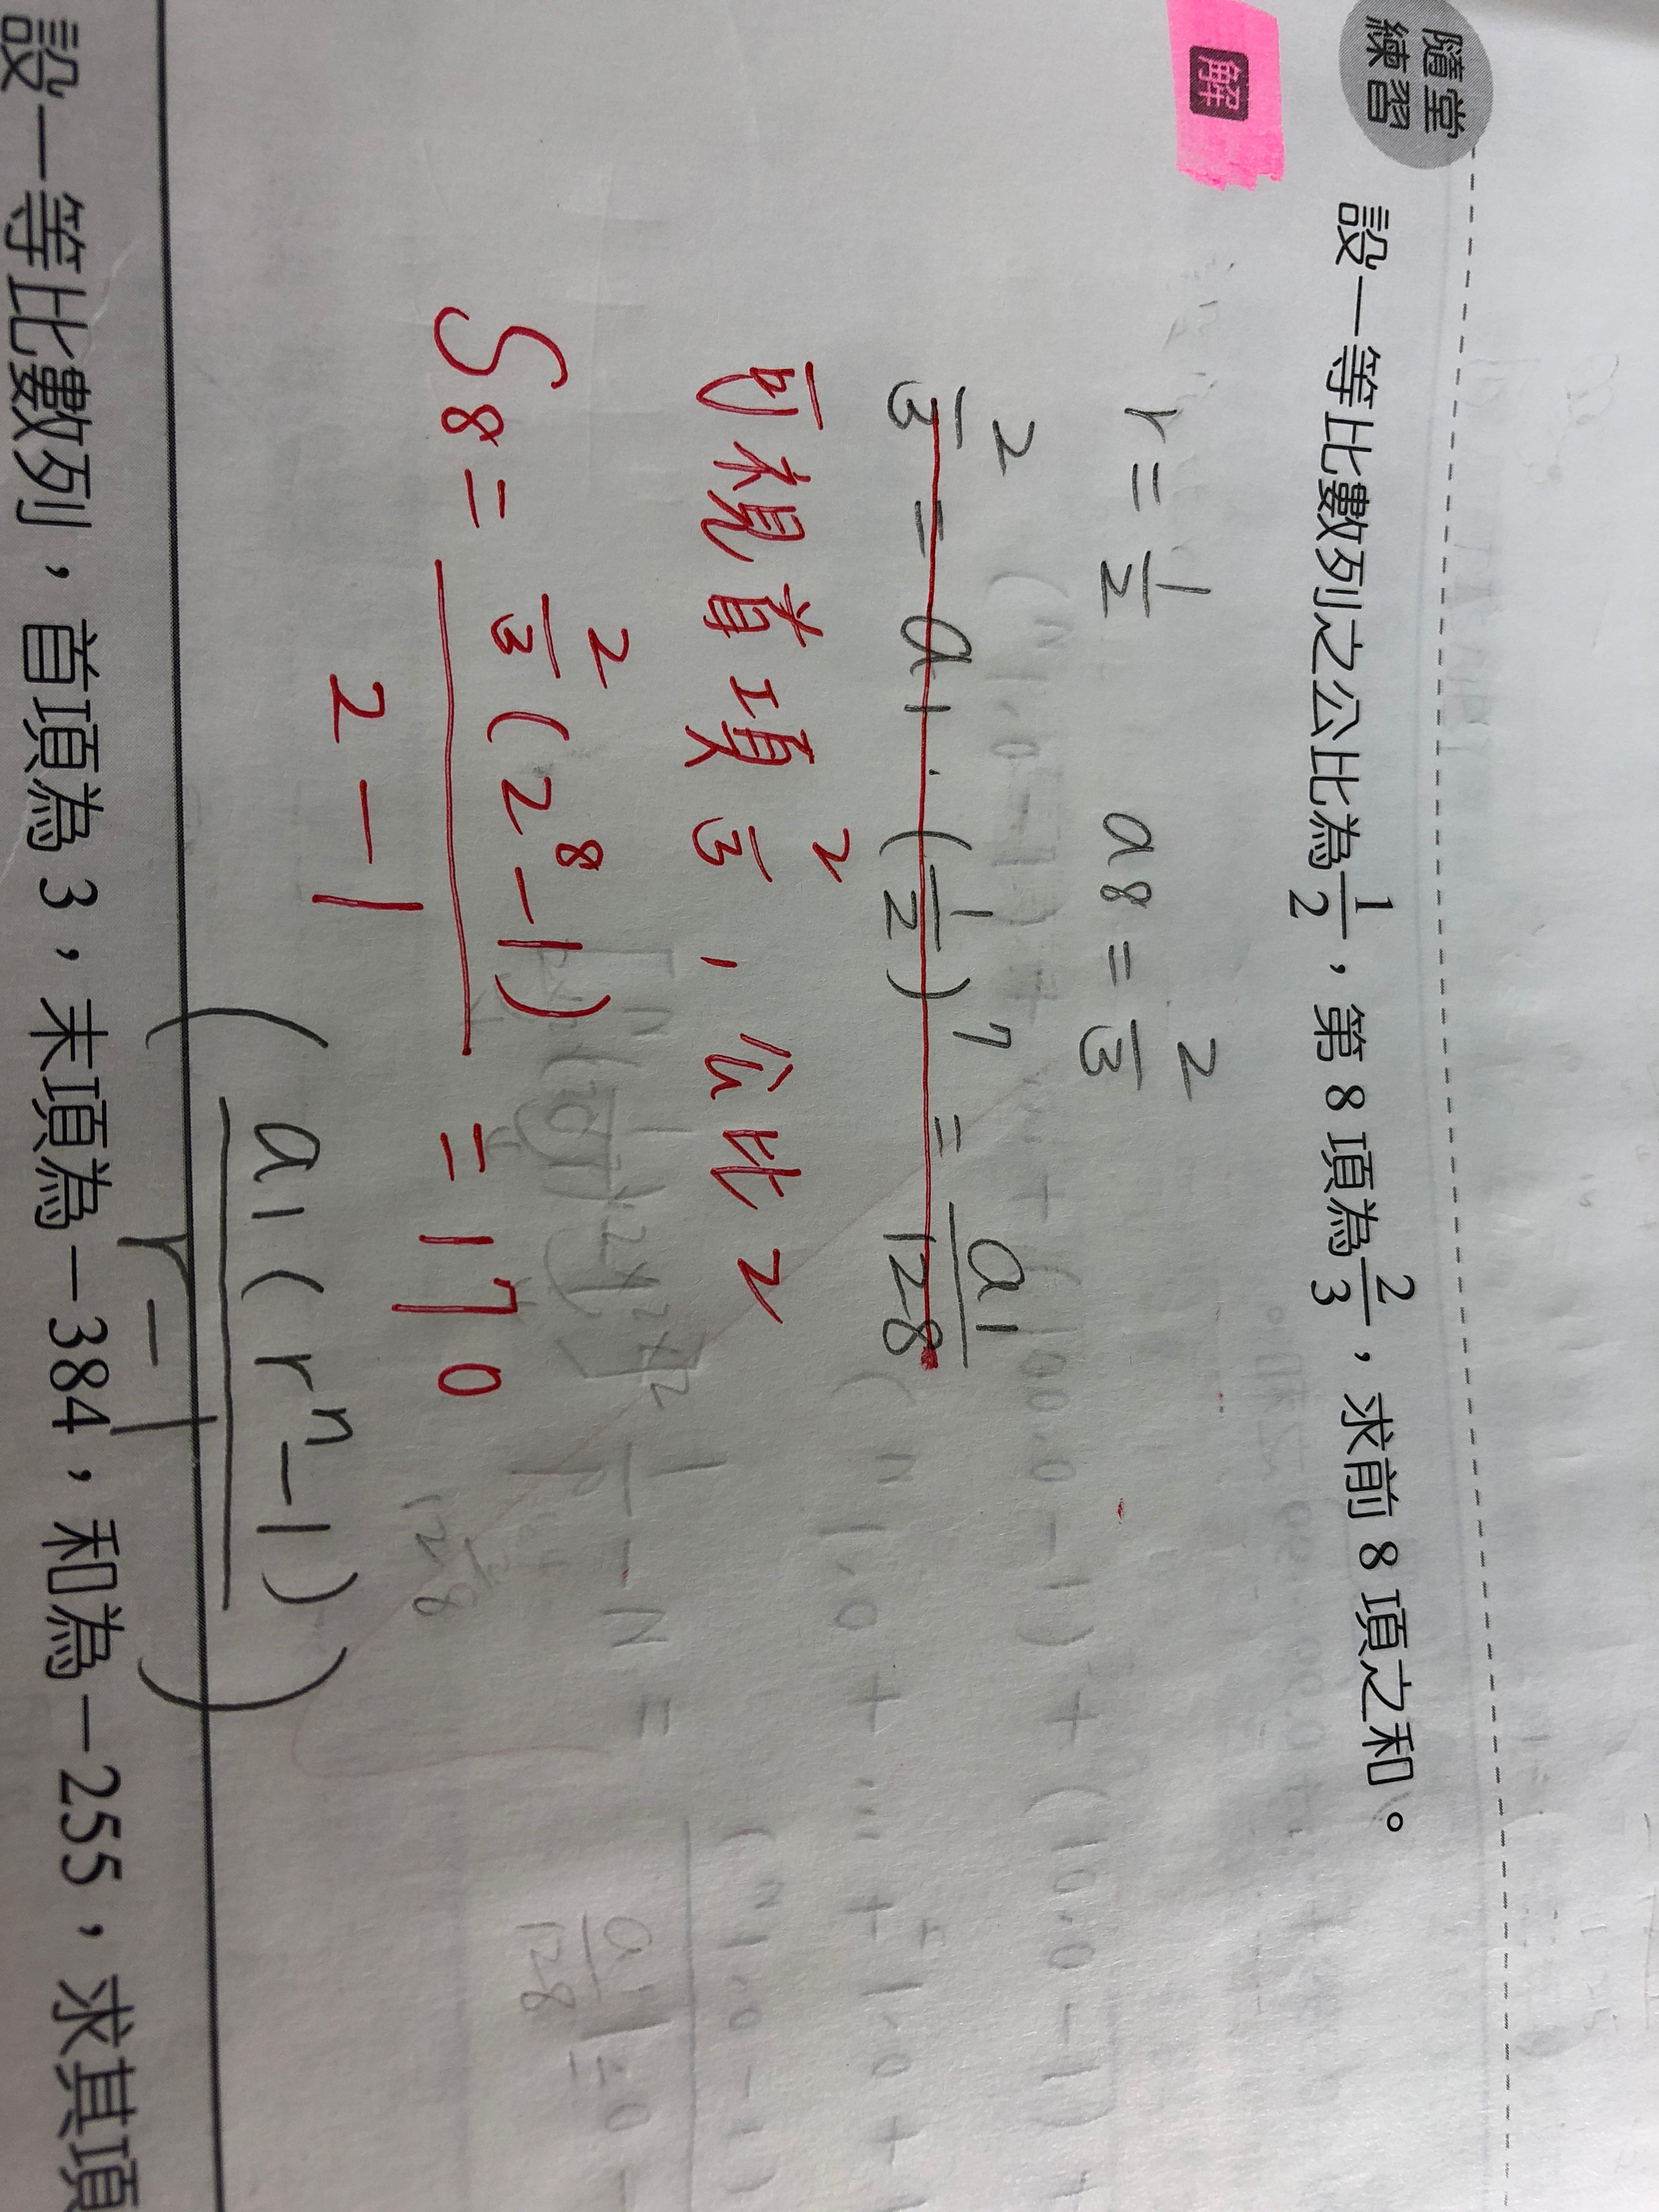 隨堂
練習
設一等比數列之公比為1/2，第 8 項為2/3，求前 8 項之和。
解
r = 1/2 a8 = 2/3
2/3 = a1·(1/2)^7 = a1/128
可視首項 2/3，公比 2
S8 = 2/3(2^8-1)/2-1 = 170
(a1(r^n-1)/r-1)
設一等比數列，首項為 3，末項為－384，和為－255，求其項